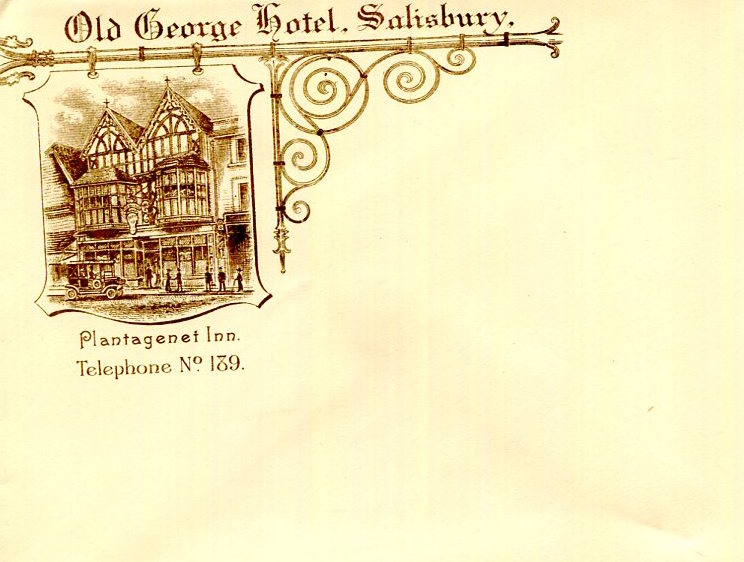 Old George Hotel, Salisbury,
Plantagenet Inn.
Telephone Nº 139.